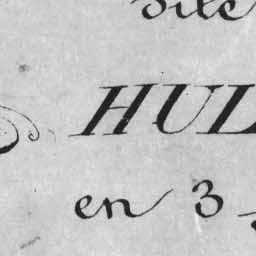 dite
HUL
en 3